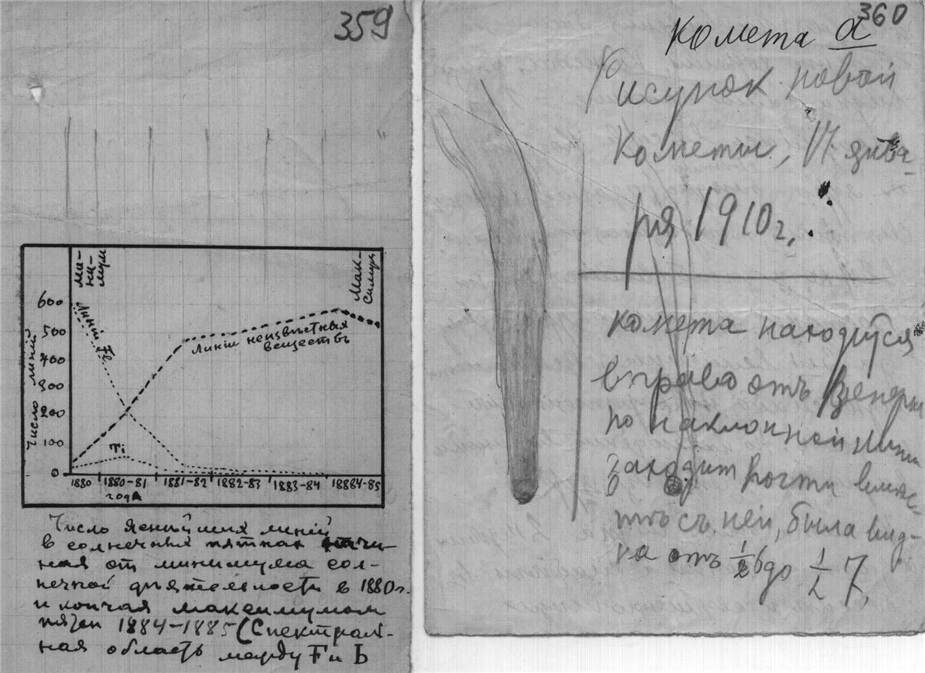 359
ми-
ни-
мум
Мак-
симум
600
500
400
300
200
100
0
Число линий
Линии Fe
Линіи неизвѣстных
веществъ
Ti
1880
1880-81
1881-82
1882-83
1883-84
18884-85
года
Число яснѣйших линій
в солнечных пятнах начи-
ная от минимума сол-
нечной дѣятельности в 1880г.
и кончая максимумом
пятен 1884-1885 (Спектраль-
ная область между F и b
360
Комета a
Рисунок новой
Кометы, 17 янва-
ря 1910г.
комета находится
вправо отъ Венеры
по наклонной линии
заходит почти вмѣс-
тѣ съ ней, была вид-
на отъ ½6 до ½ 7,